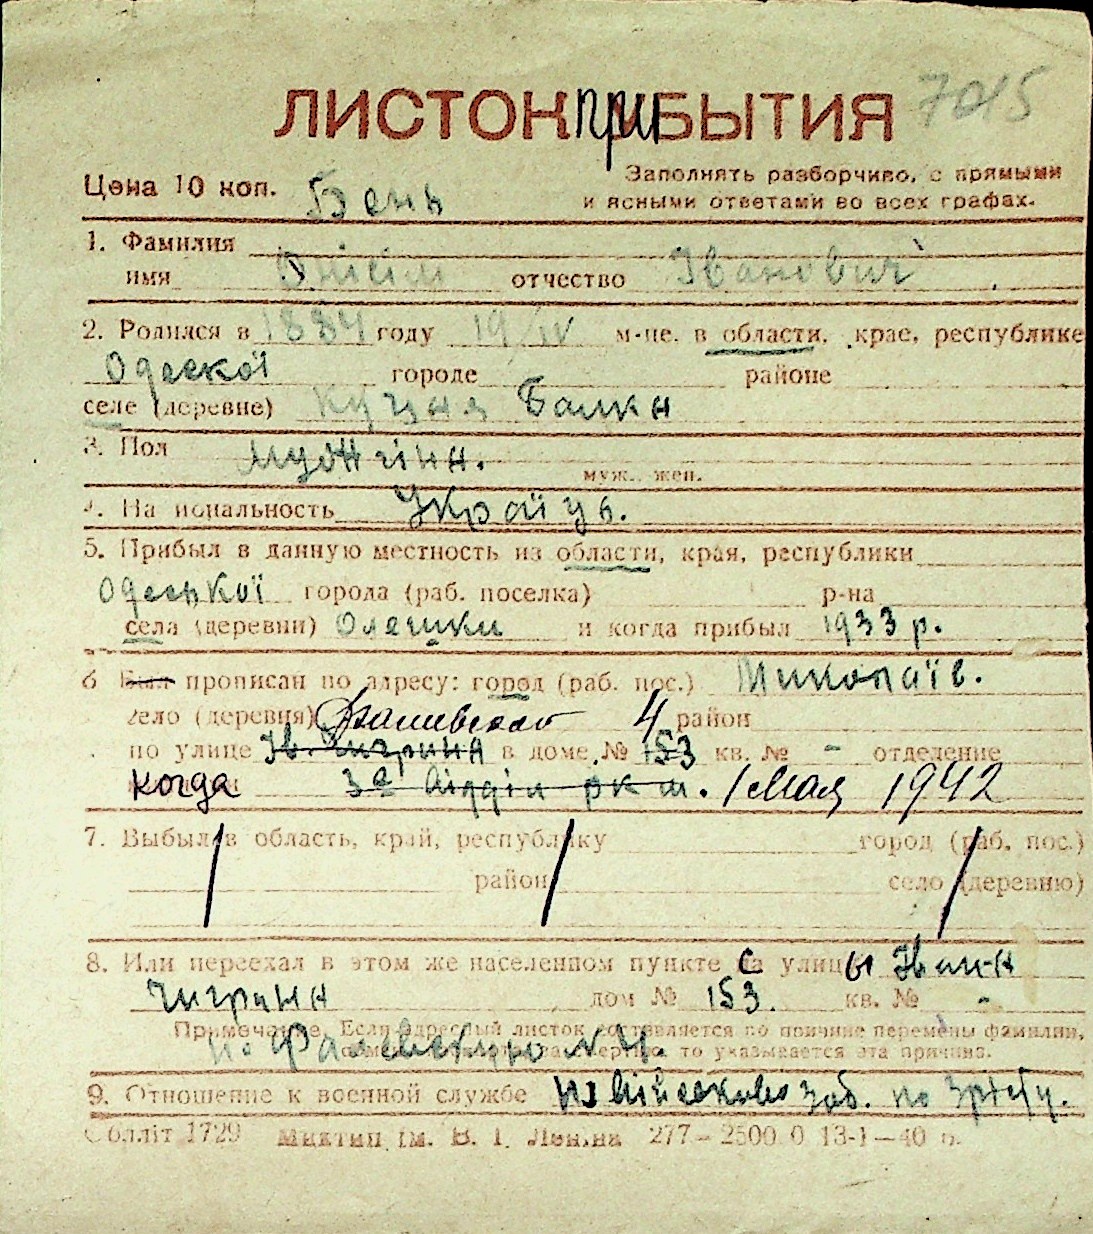 ЛИСТОК ПРИБЫТИЯ 7015
Цена 10 коп. Бень
Заполнять разборчиво, с прямыми
и ясными ответами во всех графах.
1. Фамилия
имя Онісім отчество Іванович
2. Родился в 1884 году 19/IV м-це, в области, крае, республике
Одескої городе районе
селе (деревне) Куцая Балка
3. Пол мужчіна.
муж., жен.
4. Национальность Украйць.
5. Прибыл в данную местность из области, края, республики
Одеської города (раб. поселка) р-на
села (деревни) Олешки и когда прибыл 1933 р.
6 Был прописан по адресу: город (раб. пос.) Миколаїв.
село (деревня) 4 район
по улице Ів. Чигрина в доме № 153 кв. № - отделение
когда 3е відділ ркм. 1 Мая 1942
7. Выбыл в область, край, республику город (раб. пос.)
район село (деревню)
8. Или переехал в этом же населенном пункте с улицы Івана
Чигрина дом № 153. кв. № -
Примечание. Если адресный листок составляется по причине перемены фамилии,
то указывается эта причина.
по Фалеевскую № 4.
9. Отношение к военной службе не війсковозоб. по
Обллiт 1729 Миктип ім. В. І. Леніна 277—2500 0 13-1—40 р.